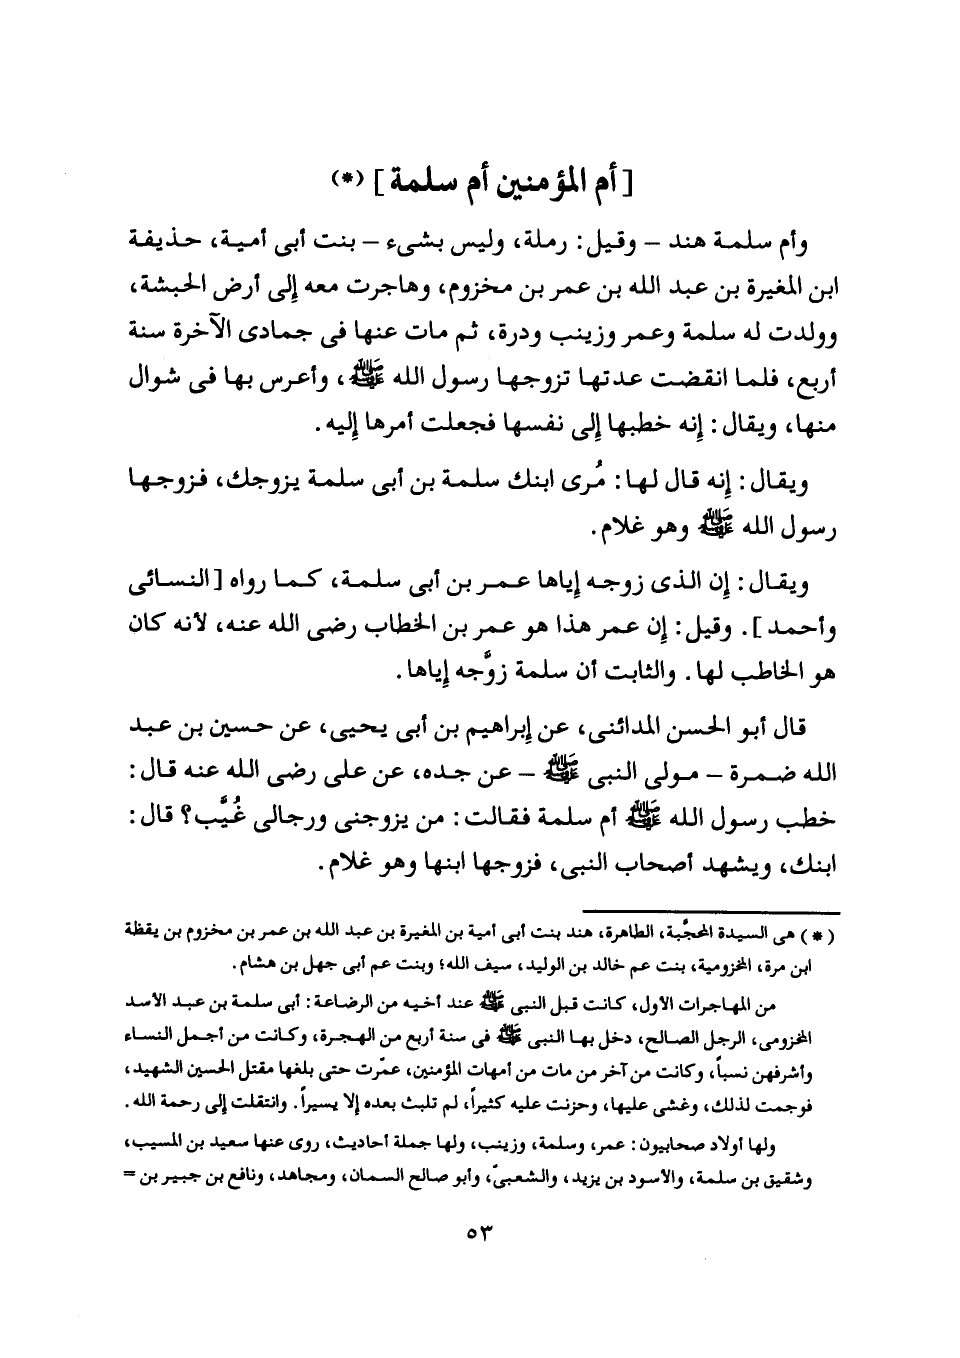 [أم المؤمنين أم سلمة] (*)
وأم سلمة هند – وقيل: رملة، وليس بشىء – بنت أبى أمية، حذيفة
ابن المغيرة بن عبد الله بن عمر بن مخزوم، وهاجرت معه إلى أرض الحبشة،
وولدت له سلمة وعمر وزينب ودرة، ثم مات عنها فى جمادى الآخرة سنة
أربع، فلما انقضت عدتها تزوجها رسول الله ﷺ، وأعرس بها فى شوال
منها، ويقال: إنه خطبها إلى نفسها فجعلت أمرها إليه.
ويقال: إنه قال لها: مُرى ابنك سلمة بن أبى سلمة يزوجك، فزوجها
رسول الله ﷺ وهو غلام.
ويقال: إن الذى زوجه إياها عمر بن أبى سلمة، كما رواه [النسائى
وأحمد]. وقيل: إن عمر هذا هو عمر بن الخطاب رضى الله عنه، لأنه كان
هو الخاطب لها. والثابت أن سلمة زوَّجه إياها.
قال أبو الحسن المدائنى، عن إبراهيم بن أبى يحيى، عن حسين بن عبد
الله ضمرة – مولى النبى ﷺ – عن جده، عن على رضى الله عنه قال:
خطب رسول الله ﷺ أم سلمة فقالت: من يزوجنى ورجالى غُيَّب؟ قال:
ابنك، ويشهد أصحاب النبى، فزوجها ابنها وهو غلام.
(*) هى السيدة المحجَّبة، الطاهرة، هند بنت أبى أمية بن المغيرة بن عبد الله بن عمر بن مخزوم بن يقظة
ابن مرة، المخزومية، بنت عم خالد بن الوليد، سيف الله؛ وبنت عم أبى جهل بن هشام.
من المهاجرات الأول، كانت قبل النبى ﷺ عند أخيه من الرضاعة: أبى سلمة بن عبد الأسد
المخزومى، الرجل الصالح، دخل بها النبى ﷺ فى سنة أربع من الهجرة، وكانت من أجمل النساء
وأشرفهن نسباً، وكانت من آخر من مات من أمهات المؤمنين، عمّرت حتى بلغها مقتل الحسين الشهيد،
فوجمت لذلك، وغشى عليها، وحزنت عليه كثيراً، لم تلبث بعده إلا يسيراً. وانتقلت إلى رحمة الله.
ولها أولاد صحابيون: عمر، وسلمة، وزينب، ولها جملة أحاديث، روى عنها سعيد بن المسيب،
وشقيق بن سلمة، والأسود بن يزيد، والشعبىّ، وأبو صالح السمان، ومجاهد، ونافع بن جبير بن =
٥٣